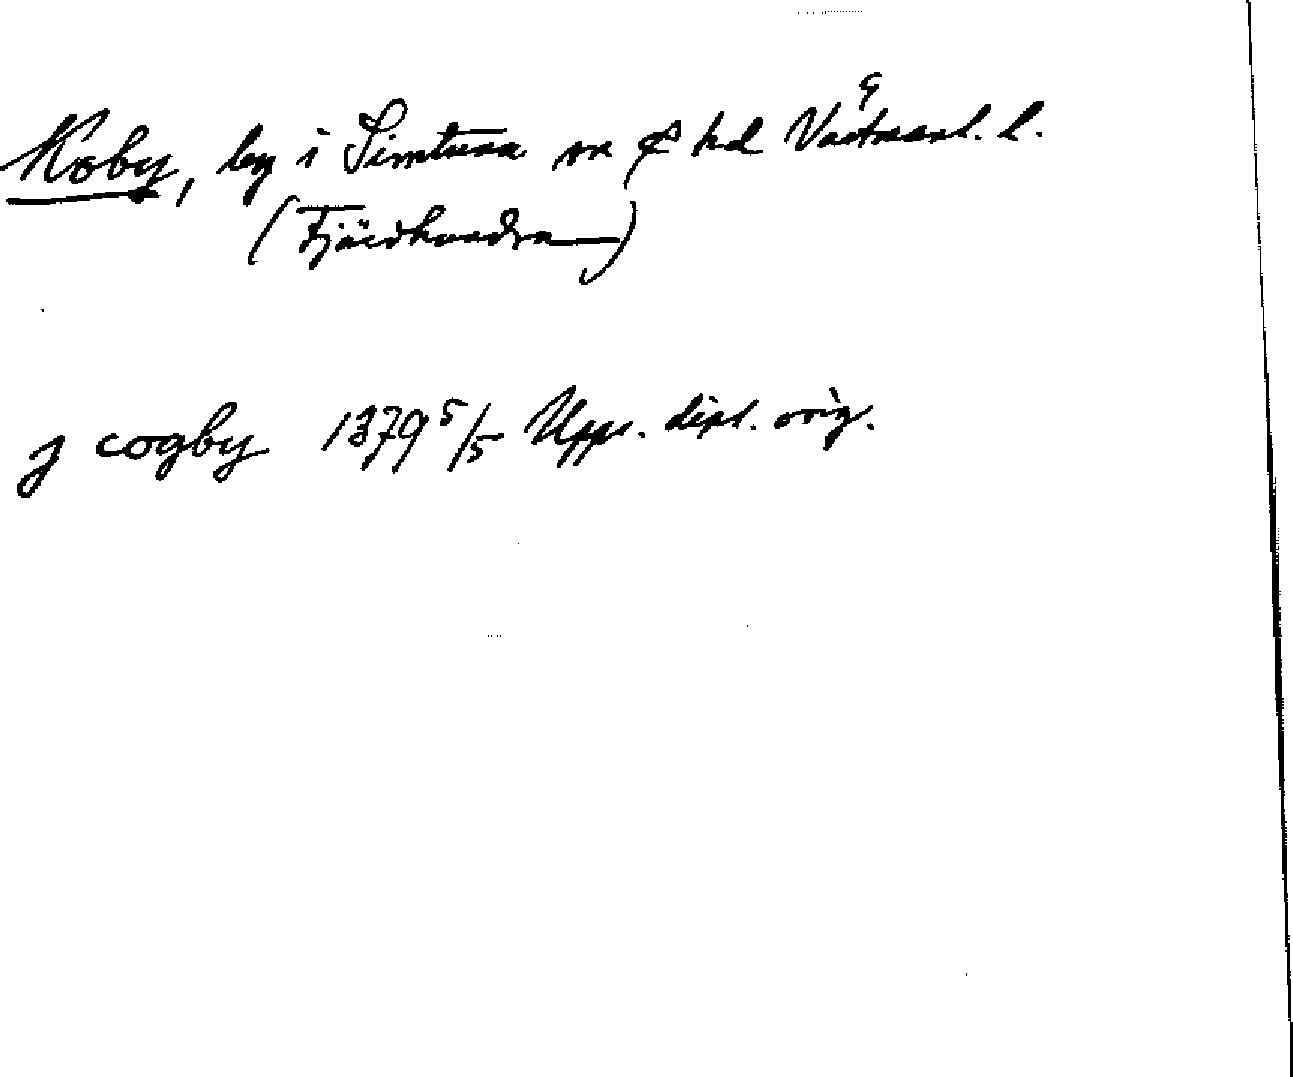 Koby, by i Simtuna sn o hd Västmanl. l.
(Fjärdhundra)
j cogby 1379 5/5 Upps. dipl. orig.